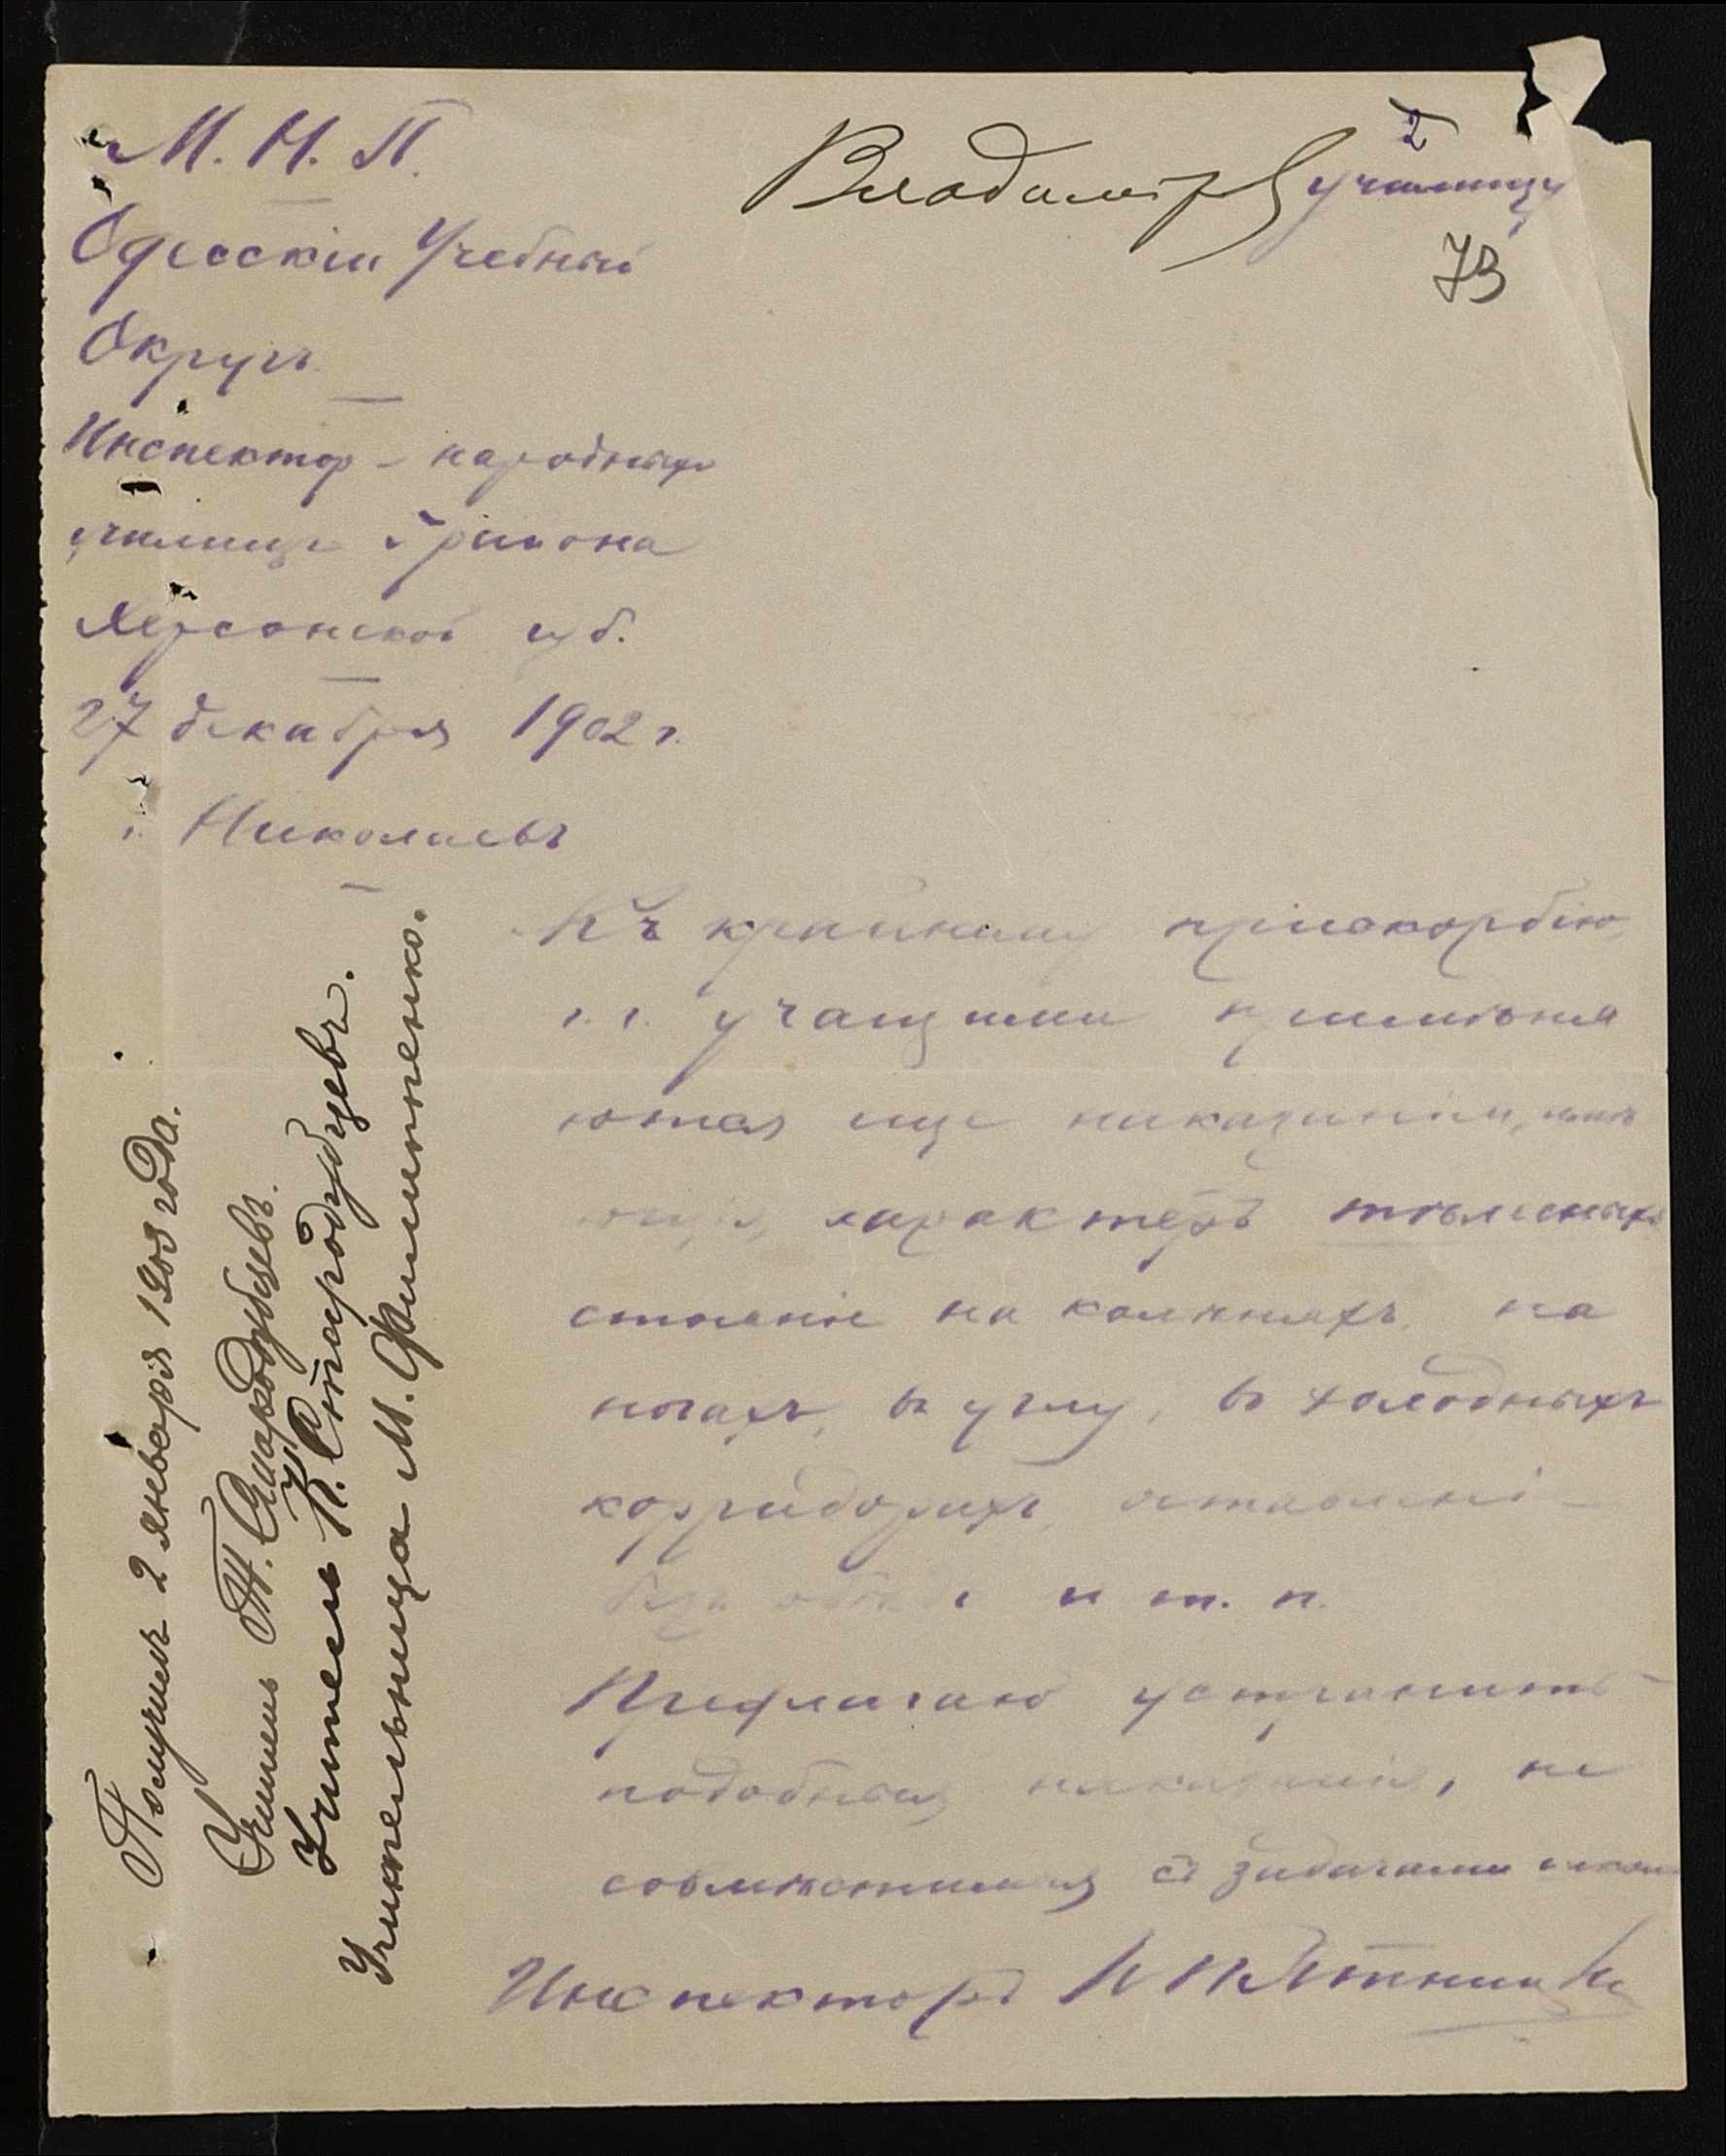 М. Н. П.
Одесскій Учебный
Округъ
Инспекторъ народныхъ
училищъ 5 района
Херсонской губ.
27 декабря 1902 г.
г. Николаевъ
2
Владимір училищу
73
Къ крайнему прискорбію,
г.г. учащими примѣня
ются еще наказанія, имѣ
ющія характеръ тѣлесныхъ
стояніе на колѣняхъ, на
ногахъ, въ углу, въ холодныхъ
корридорахъ, оставленіе
безъ обѣда и т. п.
Предлагаю устранить
подобныя наказанія, не
совмѣстимыя съ задачами школы
Инспекторъ Пятницкій
Получилъ 2 января 1903 года.
Учитель Т. Стародубцевъ.
Учитель К. Стародубцевъ.
Учительница М. Филипенко.